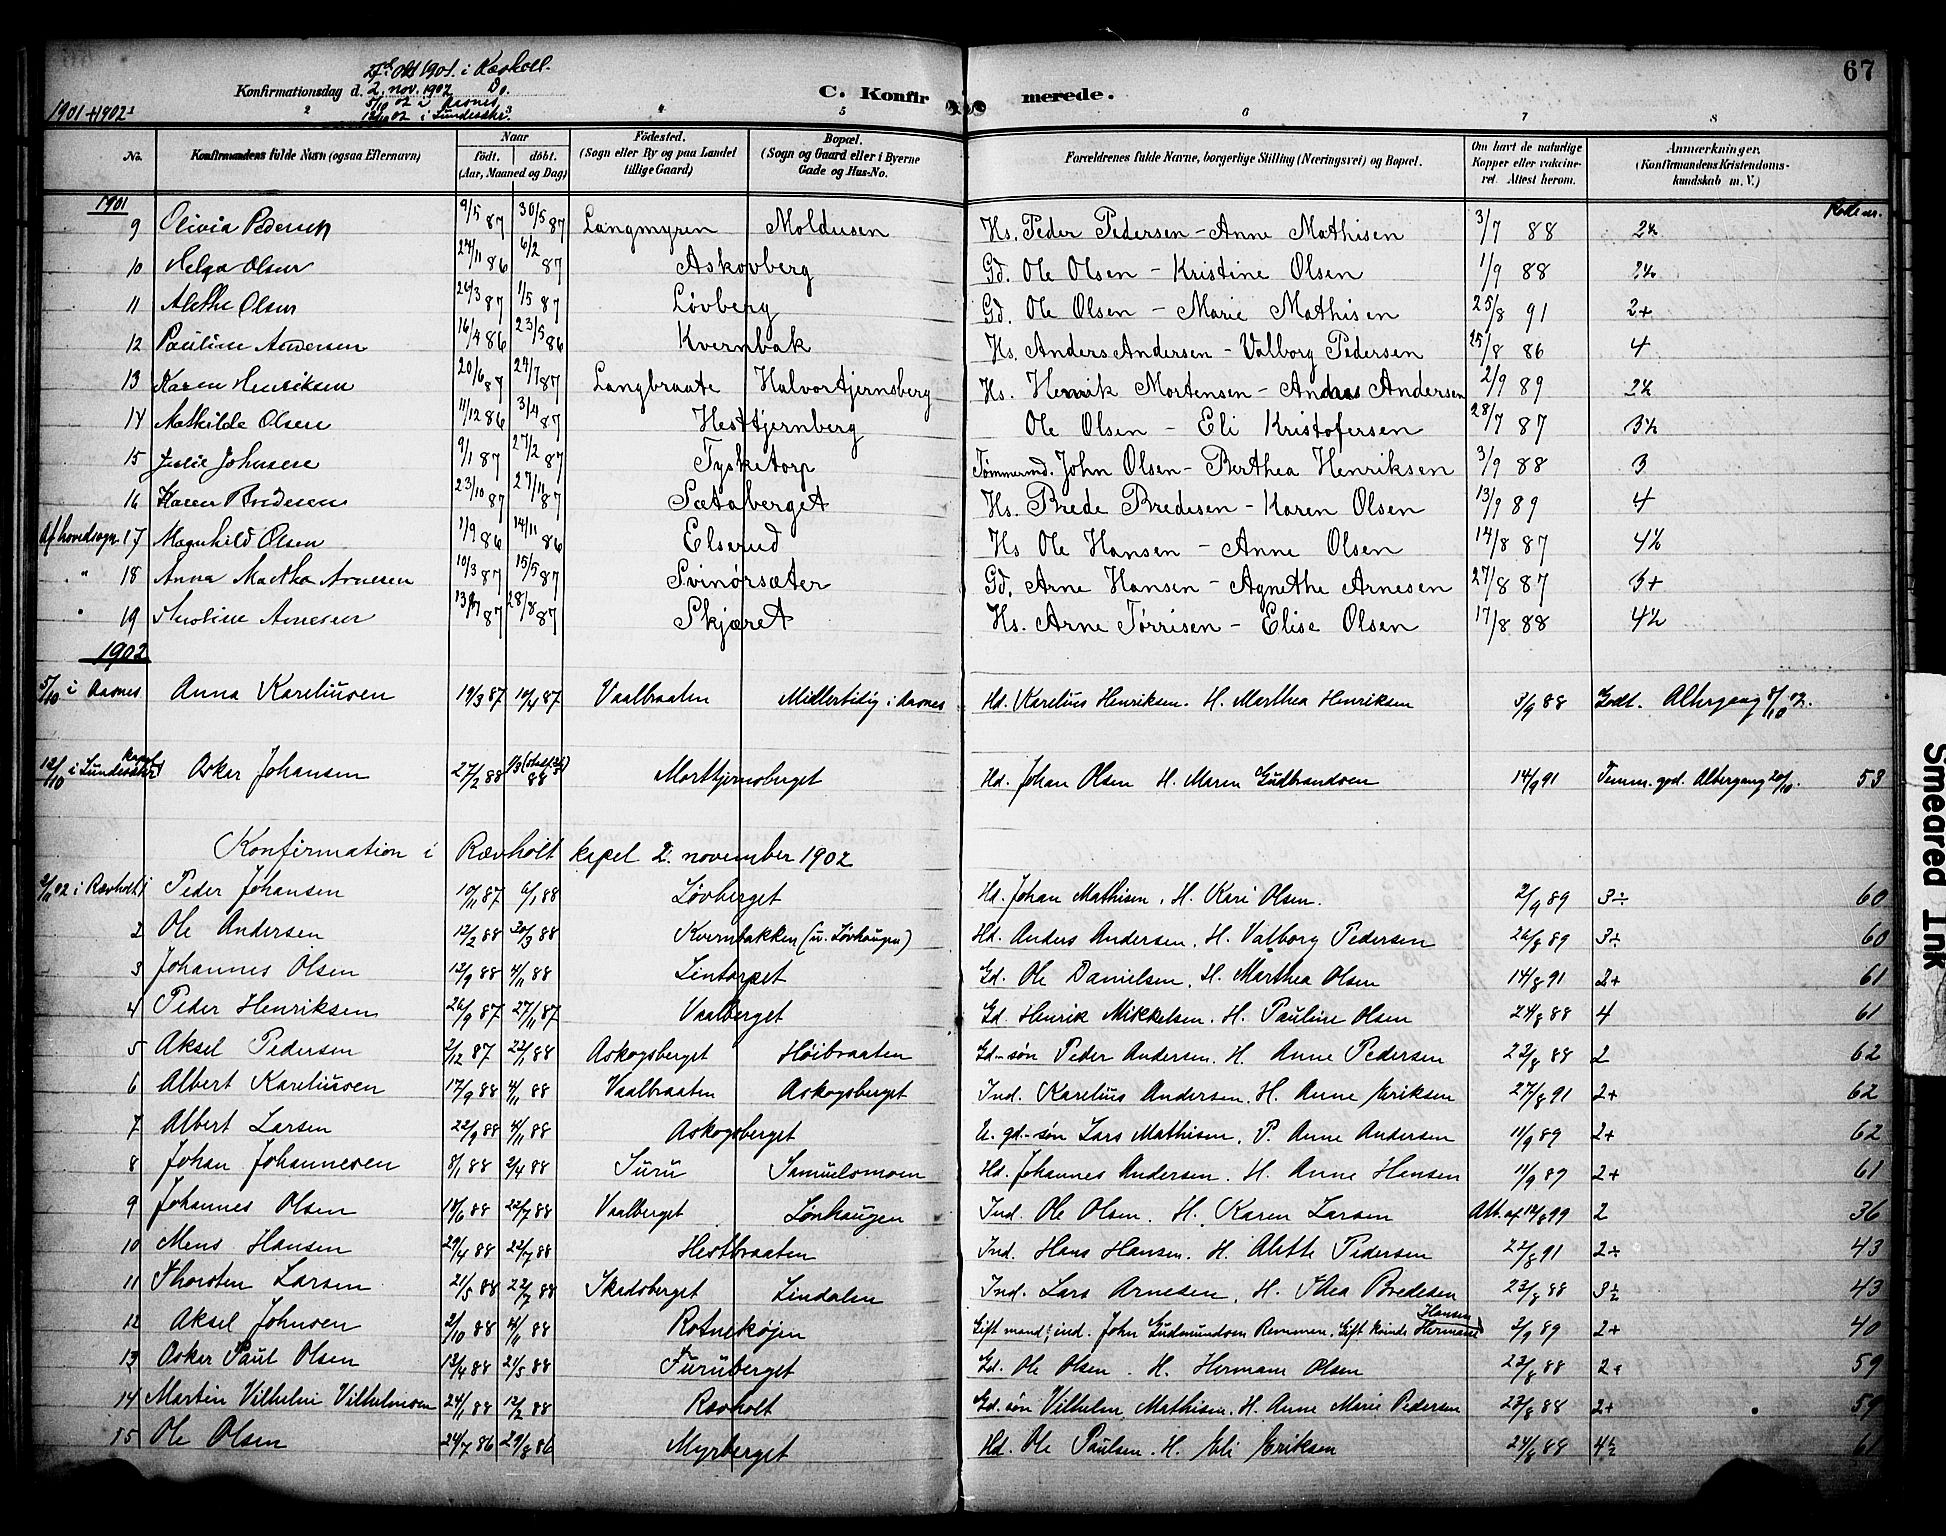 67
27de Okt 1901. i Rævholt.
Konfirmationsdag d. 2. nov. 1902 Do.
5/10 02 i Aasnes
12/10 02 i Lundersæt.
1901 + 1902
C. Konfirmerede.
2 3 4 5 6 7 8
No. Konfirmandens fulde Navn (ogsaa Efternavn) Naar født. døbt. (Aar, Maaned og Dag) Fødested. (Sogn eller By og paa Landet tillige Gaard) Bopæl. (Sogn og Gaard eller i Byerne Gade og Hus-No. Forældrenes fulde Navne, borgerlige Stilling (Næringsvei) og Bopæl. Om havt de naturlige Kopper eller vakcineret. Attest herom. Anmærkninger. (Konfirmandens Kristendomskundskab m. V.)
1901
9 Olivia Pedersen 9/5 87 30/5 87 Langmyren Moldusen Hs. Peder Pedersen - Anne Mathisen 3/7 88 2½
10 Helga Olsen 24/11 86 6/2 87 Askovberg Gd. Ole Olsen - Kristine Olsen 1/9 88 2½
11 Alethe Olsen 26/3 87 1/5 87 Løvberg Gd. Ole Olsen - Marie Mathisen 25/8 91 2+
12 Pauline Andersen 16/4 86 23/5 86 Kvernbak Hs. Anders Andersen - Valborg Pedersen 25/8 86 4
13 Karen Henriksen 20/6 87 24/7 87 Langbraate Halvortjernsberg Hs. Henrik Mortensen - Andrea Andersen 2/9 89 2½
14 Mathilde Olsen 11/12 86 3/4 87 Hesttjernberg Ole Olsen - Eli Kristofersen 28/7 87 3½
15 Julie Johnsen 9/1 87 27/2 87 Tysketorp Tømmermd. John Olsen - Berthea Henriksen 3/9 88 3
16 Karen Bredesen 23/10 87 27/11 87 Sætaberget Hs. Brede Bredesen - Karen Olsen 13/9 89 4
Af hovedsogn 17 Magnhild Olsen 1/9 86 14/11 86 Elserud Hs Ole Hansen - Anne Olsen 14/8 87 4½
" 18 Anna Martha Arnesen 10/3 87 15/5 87 Svinørsæter Gd. Arne Hansen - Agnethe Arnesen 27/8 87 3+
" 19 Karoline Arnesen 87 28/8 87 Skjæret Hs. Arne Tørrisen - Elise Olsen 17/8 88 4½
1902
5/10 i Aasnes Anna Kareliusen 19/3 87 10/4 87 Vaalbraaten Midlertidig i Aasnes Hd. Karelius Henriksen. H. Marthea Henriksen 3/9 88 Godt. Altergang 8/10 02.
12/10 i Lundersæt kapel Oskar Johansen 27/2 88 88 Morttjernsberget Hd. Johan Olsen H. Maren Gulbrandsen 14/9 91 Temm. god. Altergang 20/10. 53
Konfirmation i Rævholt kapel 2. november 1902
2/11 02 i Rævholt 1 Peder Johansen 10/11 87 6/1 88 Løvberget Hd. Johan Mathisen. H. Kari Olsen. 2/9 89 3÷ 60
2 Ole Andersen 12/2 88 20/3 88 Kvernbakken (u. Løvhaugen) Hd. Anders Andersen. H. Valborg Pedersen 26/8 89 3÷ 60
3 Johannes Olsen 12/9 88 4/11 88 Lintorpet Gd. Ole Danielsen. H. Marthea Olsen 14/8 91 2+ 61
4 Peder Henriksen 26/9 87 27/11 87 Vaalberget Gd. Henrik Mikkelsen. H. Pauline Olsen 24/8 88 4 61
5 Aksel Pedersen 2/12 87 22/1 88 Askogsberget Høibraaten Gd-søn Peder Andersen. H. Anne Pedersen 22/8 88 2 62
6 Albert Kareliusen 17/9 88 4/11 88 Vaalbraaten Askogsberget Ind. Karelius Andersen. H. Anne Eriksen 27/8 91 2+ 62
7 Albert Larsen 22/9 88 4/11 88 Askogsberget U. gd-søn Lars Mathisen. P. Anne Andersen 11/9 89 2+ 62
8 Johan Johannesen 8/1 88 2/4 88 Furu Samuelsmoen Hd. Johannes Andersen. H. Anne Hansen 11/9 89 2+ 61
9 Johannes Olsen 18/6 88 22/7 88 Vaalberget Lønhaugen Ind. Ole Olsen. H. Karen Larsen Att. af 12/8 99 2 36
10 Mens Hansen 29/4 88 22/7 88 Hestbraaten Ind. Hans Hansen. H. Alette Pedersen 22/8 91 2÷ 43
11 Thorsten Larsen 21/5 88 22/7 88 Skadsberget Lindalen Ind. Lars Arnesen. H. Thea Bredesen 23/8 88 3½ 43
12 Aksel Johnsen 2/10 88 4/11 88 Rotneskøjen Gift mand; ind. John Gudmundsen Remmen. Gift kvinde Hansen Hermane 2/9 89 2+ 40
13 Oskar Paul Olsen 12/4 88 21/5 88 Furuberget Gd. Ole Olsen. H. Hermane Olsen 22/8 88 2+ 59
14 Martin Vilhelm Vilhelmsen 24/1 88 12/2 88 Rævholt Gd. søn Vilhelm Mathisen. H. Anne Marie Pedersen 23/8 88 2+ 59
15 Ole Olsen 24/7 86 29/8 86 Myrberget Hd. Ole Paulsen. H. Eli Eriksen 24/8 88 4½ 61
Smeared Ink